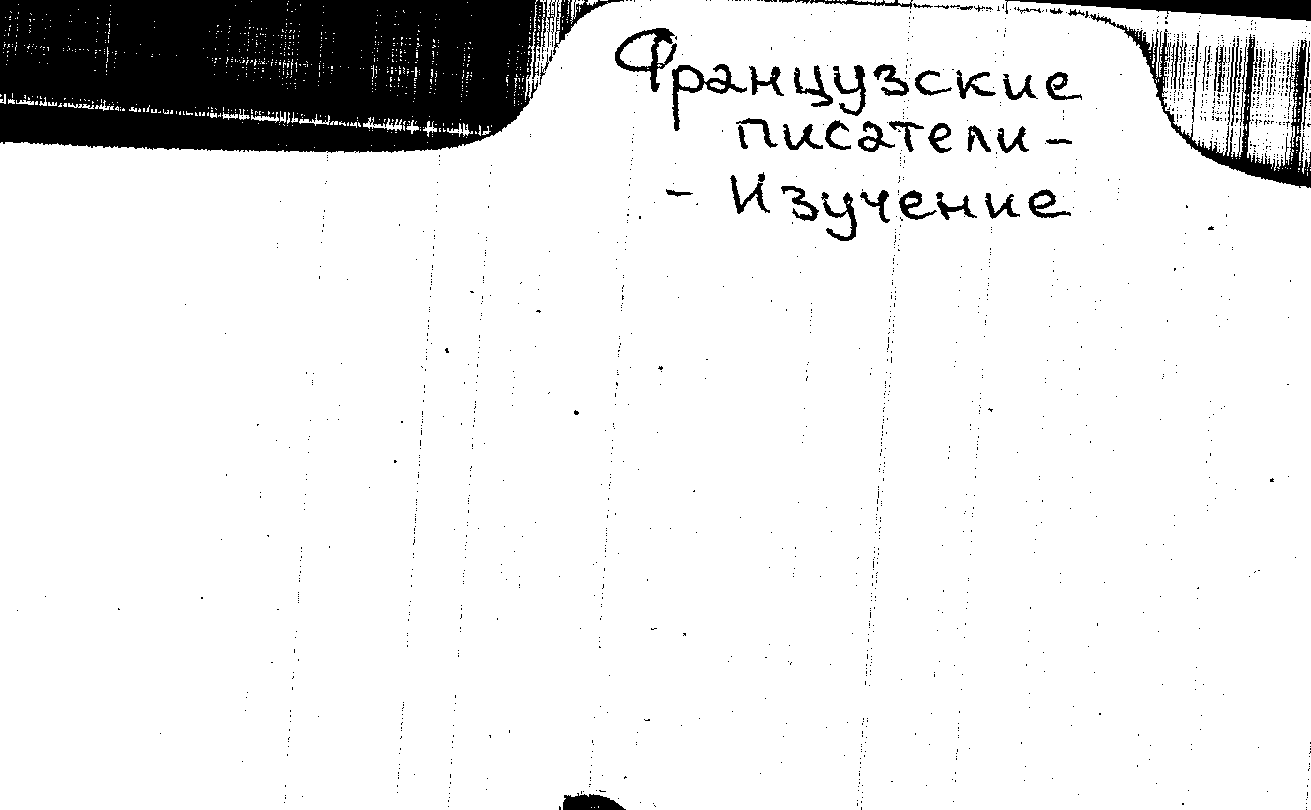 Французские
писатели -
- Изучение